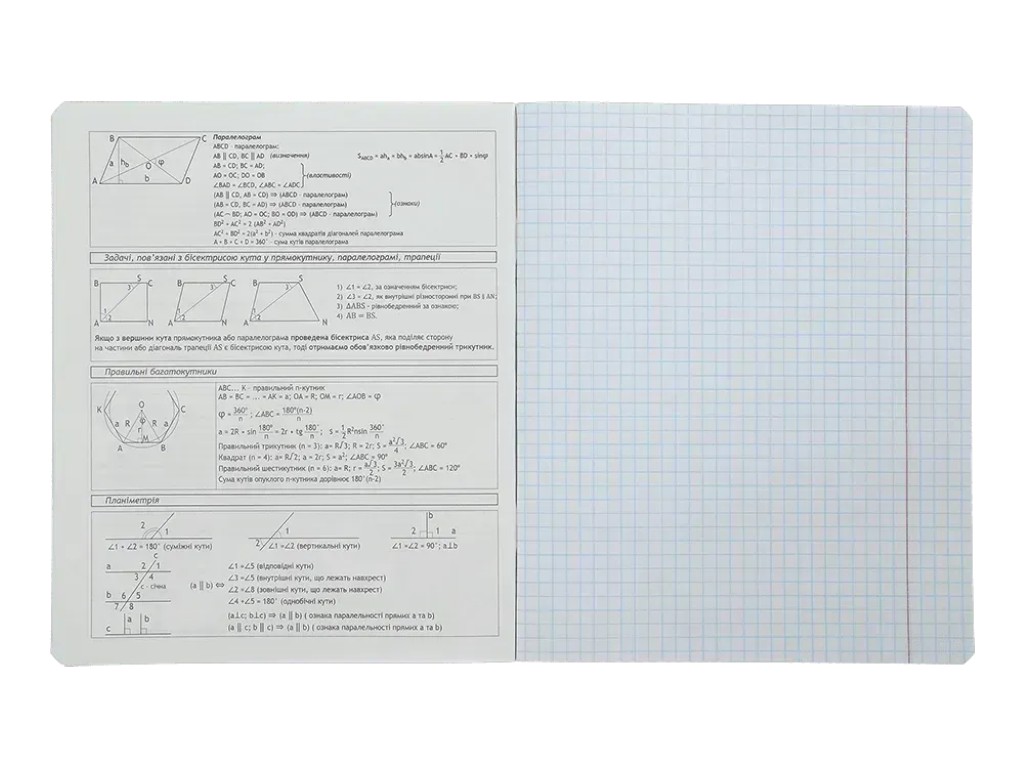 Паралелограм
ABCD - паралелограм:
AB || CD, BC || AD (визначення) S_ABCD = ah_a = bh_b = absinA = 1/2 AC * BD * sinφ
AB = CD; BC = AD;
AO = OC; DO = OB (властивості)
∠BAD = ∠BCD, ∠ABC = ∠ADC
(AB || CD, AB = CD) ⇒ (ABCD - паралелограм)
(AB = CD, BC = AD) ⇒ (ABCD - паралелограм) (ознаки)
(AC ∩ BD; AO = OC; BO = OD) ⇒ (ABCD - паралелограм)
BD² + AC² = 2 (AB² + AD²)
AC² + BD² = 2(a² + b²) - сумма квадратів діагоналей паралелограма
A + B + C + D = 360° - сума кутів паралелограма
B C a h_b O φ b A D
Задачі, пов'язані з бісектрисою кута у прямокутнику, паралелограмі, трапеції
B S C 3 1 2 A N
B S C 3 1 2 A N
B S 3 1 2 A N
1) ∠1 = ∠2, за означенням бісектрис;
2) ∠3 = ∠2, як внутрішні різносторонні при BS || AN;
3) ΔABS - рівнобедренний за ознакою;
4) AB = BS.
Якщо з вершини кута прямокутника або паралелограма проведена бісектриса AS, яка поділяє сторону
на частини або діагональ трапеції AS є бісектрисою кута, тоді отримаємо обов'язково рівнобедренний трикутник.
Правильні багатокутники
K O C a R φ R a r M A B
ABC... K - правильний n-кутник
AB = BC = ... = AK = a; OA = R; OM = r; ∠AOB = φ
φ = 360°/n ; ∠ABC = 180°(n-2)/n
a = 2R * sin 180°/n = 2r * tg 180°/n ; S = 1/2 R²nsin 360°/n
Правильний трикутник (n = 3): a= R√3; R = 2r; S = a²√3/4 ; ∠ABC = 60°
Квадрат (n = 4): a= R√2; a = 2r; S = a²; ∠ABC = 90°
Правильний шестикутник (n = 6): a= R; r = a√3/2 ; S = 3a²√3/2 ; ∠ABC = 120°
Сума кутів опуклого n-кутника дорівнює 180°(n-2)
Планіметрія
2 1
∠1 + ∠2 = 180° (суміжні кути)
1 2
∠1 =∠2 (вертикальні кути)
b 2 1 a
∠1 =∠2 = 90°; a⊥b
c a 2 1 3 4 c - січна b 6 5 7 8
(a || b) ⇔
∠1 =∠5 (відповідні кути)
∠3 =∠5 (внутрішні кути, що лежать навхрест)
∠2 =∠8 (зовнішні кути, що лежать навхрест)
∠4 +∠5 = 180° (однобічні кути)
a b c
(a⊥c; b⊥c) ⇒ (a || b) ( ознака паралельності прямих a та b)
(a || c; b || c) ⇒ (a || b) ( ознака паралельності прямих a та b)